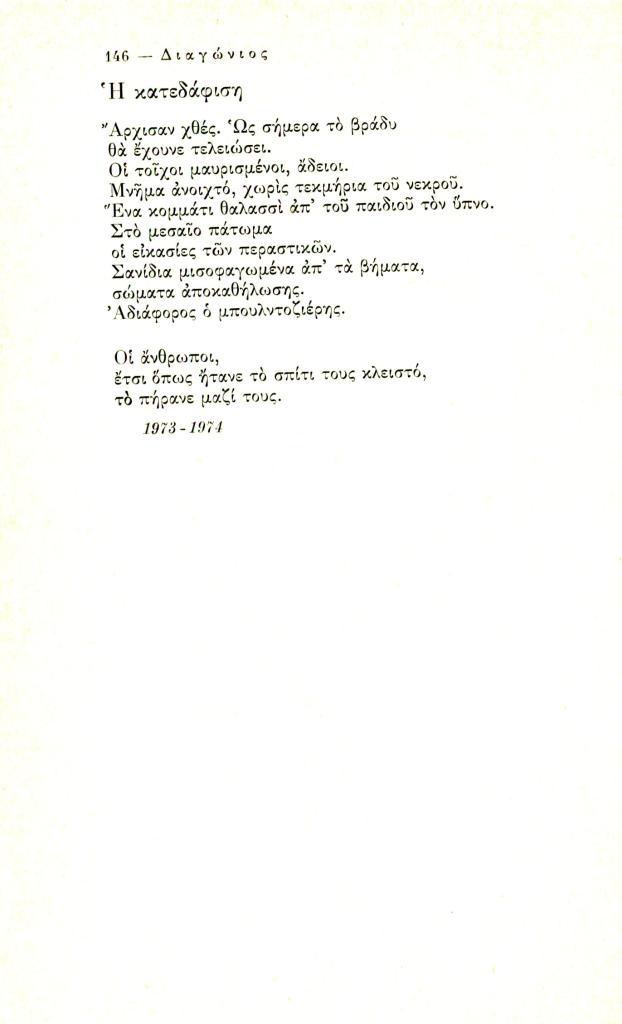 146 — Διαγώνιος
Ἡ κατεδάφιση
Ἄρχισαν χθές. Ὡς σήμερα τὸ βράδυ
θὰ ἔχουνε τελειώσει.
Οἱ τοῖχοι μαυρισμένοι, ἄδειοι.
Μνῆμα ἀνοιχτό, χωρὶς τεκμήρια τοῦ νεκροῦ.
Ἕνα κομμάτι θαλασσὶ ἀπ’ τοῦ παιδιοῦ τὸν ὕπνο.
Στὸ μεσαῖο πάτωμα
οἱ εἰκασίες τῶν περαστικῶν.
Σανίδια μισοφαγωμένα ἀπ’ τὰ βήματα,
σώματα ἀποκαθήλωσης.
Ἀδιάφορος ὁ μπουλντοζιέρης.
Οἱ ἄνθρωποι,
ἔτσι ὅπως ἤτανε τὸ σπίτι τους κλειστό,
τὸ πήρανε μαζί τους.
1973-1974